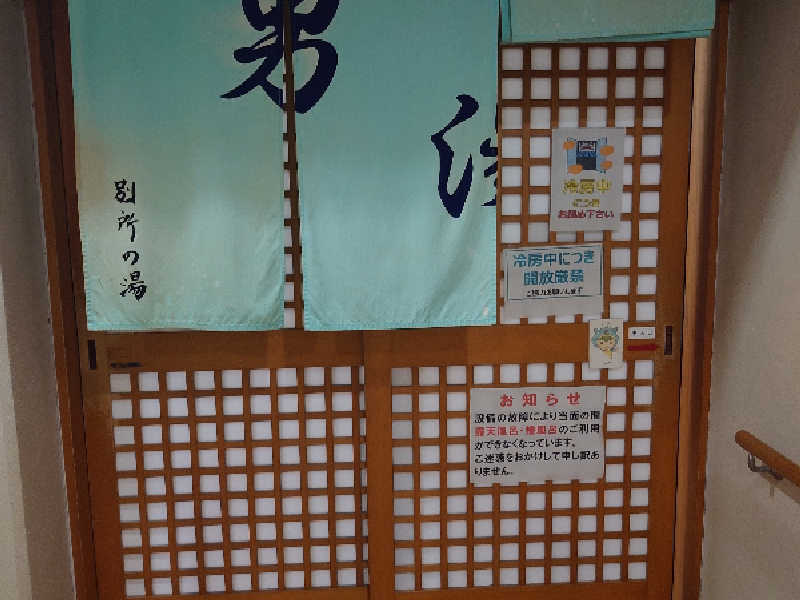 男
別所の湯
冷房中
お閉め下さい
冷房中につき
開放厳禁
お知らせ
設備の故障により当面の間
露天風呂・檜風呂のご利用
ができなくなっています。
ご迷惑をおかけして申し訳あ
りません。